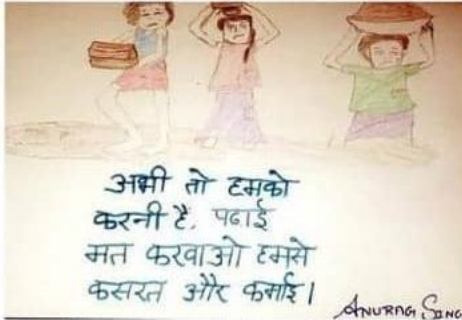 अभी तो हमको
करनी है, पढाई
मत करवाओ हमसे
कसरत और कमाई।
ANURAG SING